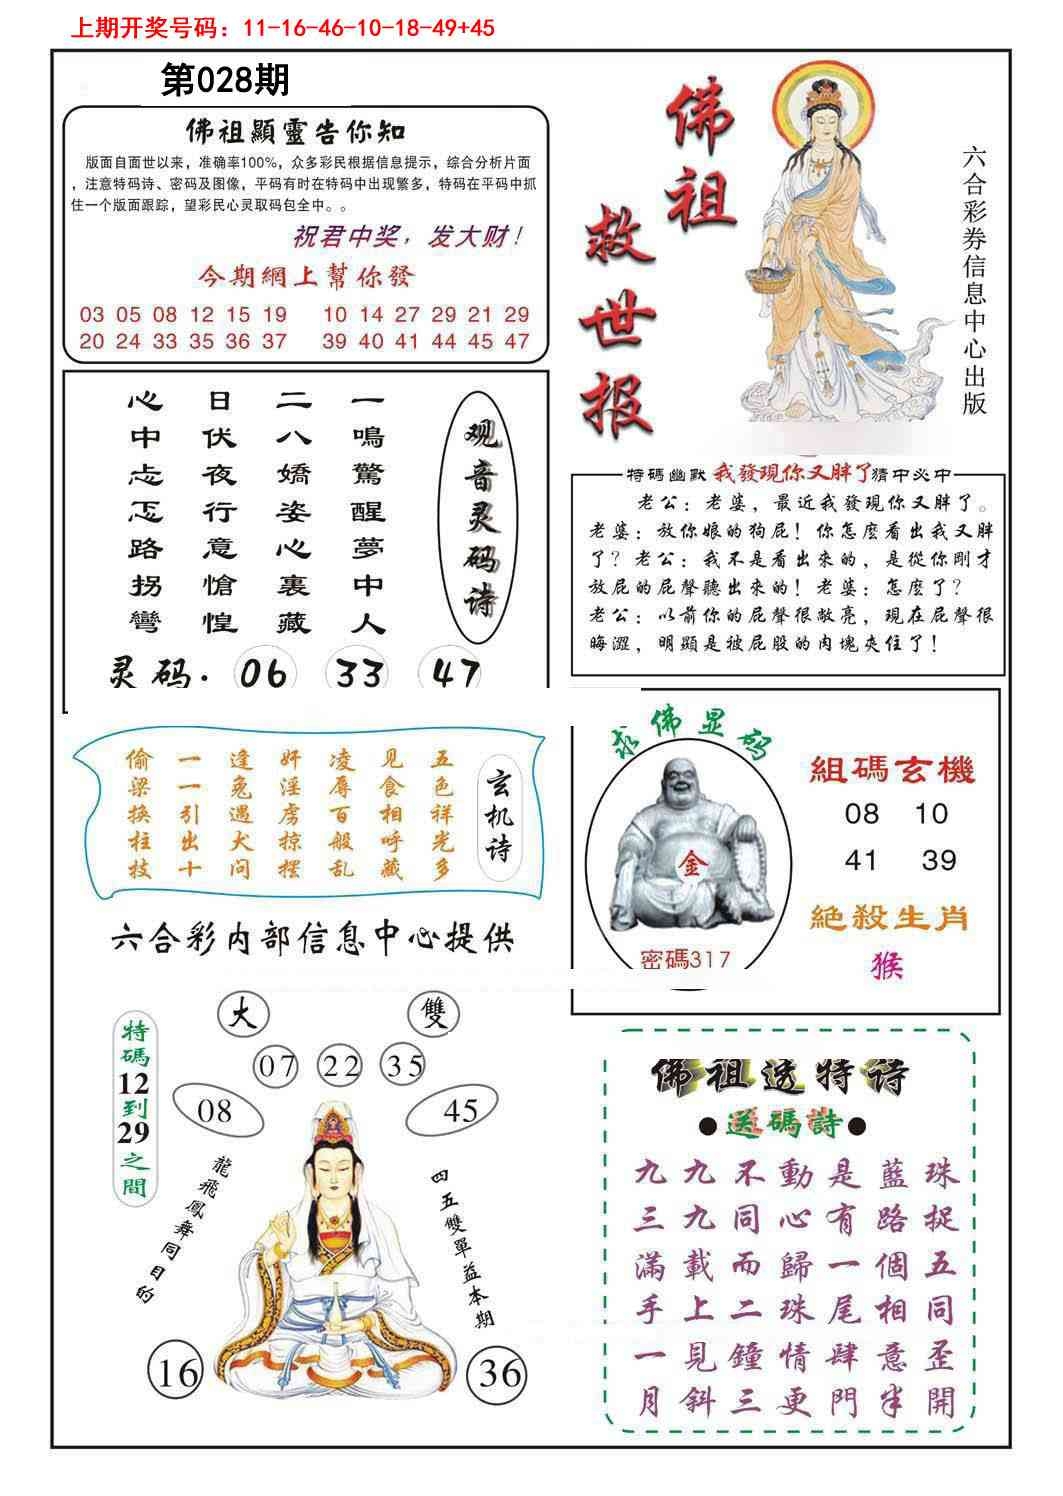 上期开奖号码：11-16-46-10-18-49+45
第028期
佛祖顯靈告你知
版面自面世以来，准确率100%，众多彩民根据信息提示，综合分析片面
，注意特码诗、密码及图像，平码有时在特码中出现繁多，特码在平码中抓
住一个版面跟踪，望彩民心灵取码包全中。。
祝君中奖，发大财！
今期網上幫你發
03 05 08 12 15 19 10 14 27 29 21 29
20 24 33 35 36 37 39 40 41 44 45 47
佛祖
救世报
六合彩券信息中心出版
观音灵码诗
一鳴驚醒夢中人
二八嬌姿心裏藏
日伏夜行意愴惶
心中忐忑路拐彎
灵码. 06 33 47
特碼幽默 我發現你又胖了 猜中必中
老公：老婆，最近我發現你又胖了。
老婆：放你娘的狗屁！你怎麽看出我又胖
了？老公：我不是看出來的，是從你剛才
放屁的屁聲聽出來的！老婆：怎麽了？
老公：以前你的屁聲很敞亮，現在屁聲很
晦澀，明顯是被屁股的肉塊夾住了！
玄机诗
五色祥光多
见食相呼藏
凌辱百般乱
奸淫虏掠摆
逢兔遇犬问
一一引出十
偷梁换柱技
六合彩内部信息中心提供
求佛显码
金
密碼317
組碼玄機
08 10
41 39
絕殺生肖
猴
特碼12到29之間
大 雙
07 22 35
08 45
龍飛鳳舞同目的
四五雙單益本期
16 36
佛祖透特诗
●送碼詩●
九九不動是藍珠
三九同心有路捉
滿載而歸一個五
手上二珠尾相同
一見鐘情肆意歪
月斜三更門半開